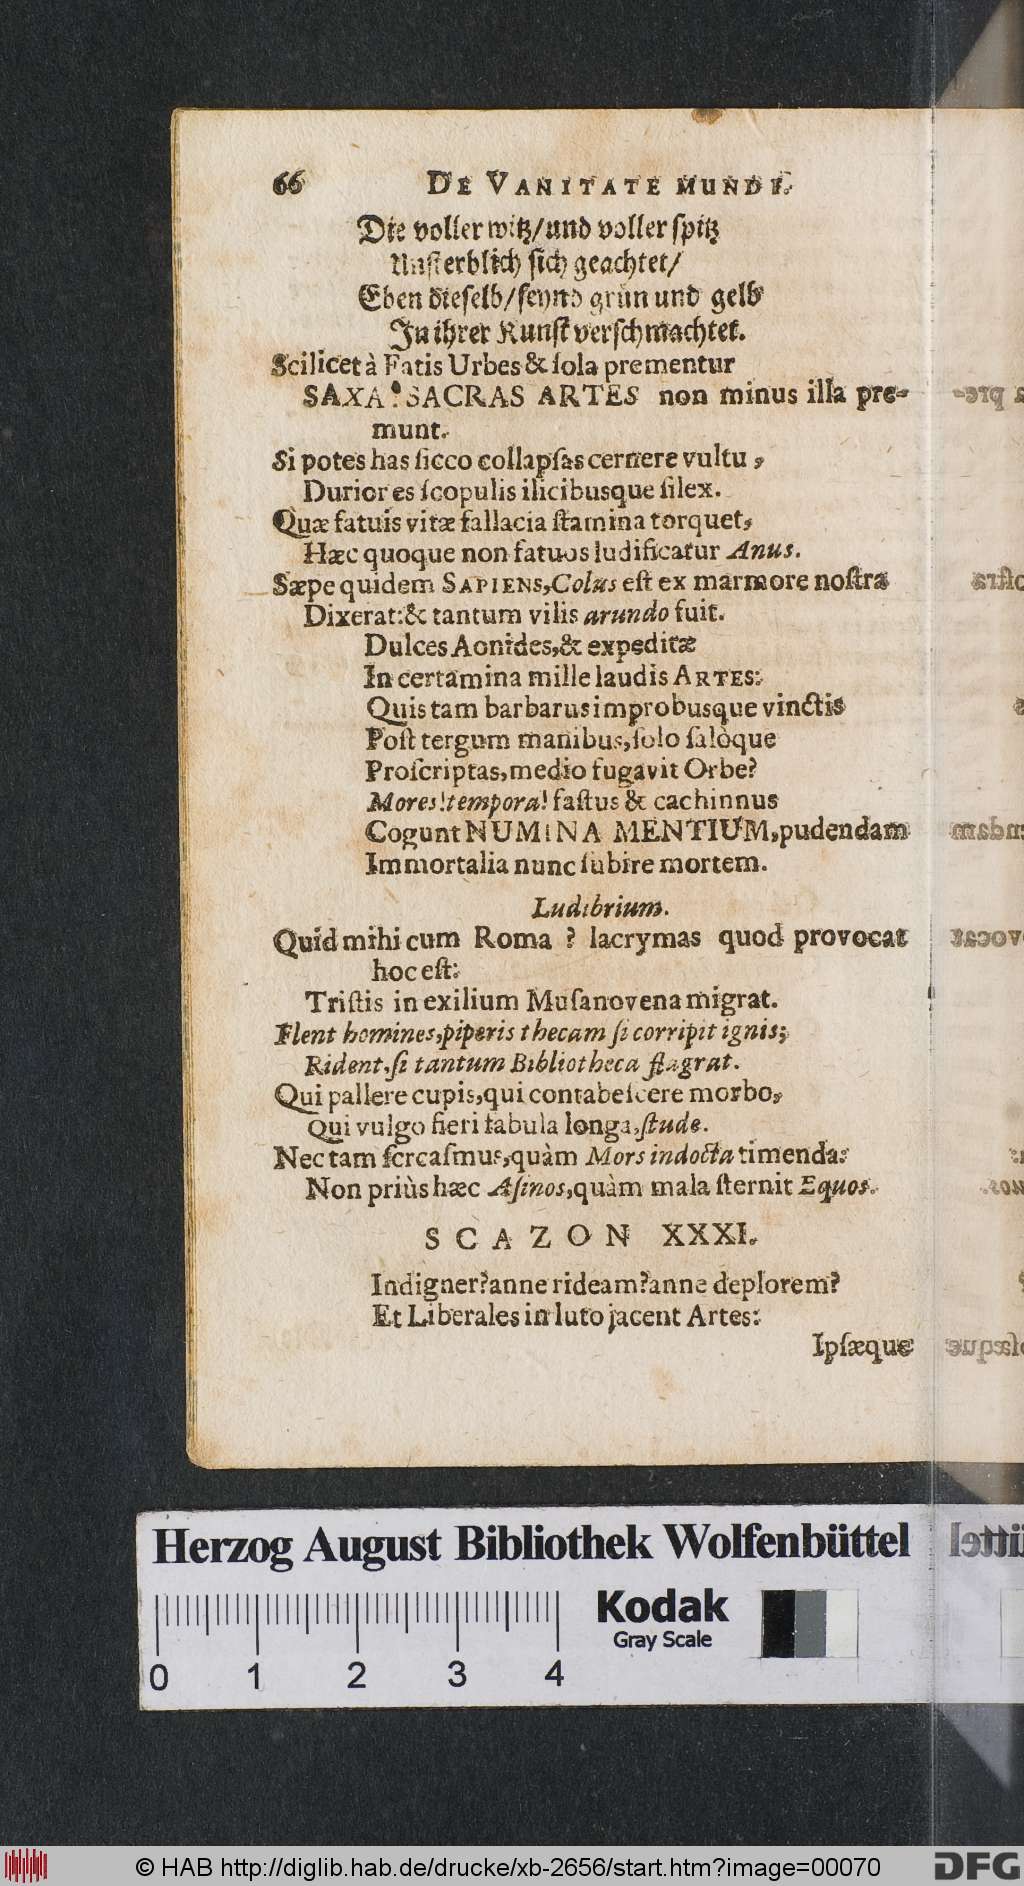 66 DE VANITATE MUNDI.
Die voller witz/und voller spitz
Unsterblich sich geachtet/
Eben dieselb/seynd grün und gelb
In ihrer Kunst verschmachtet.
Scilicet à Fatis Urbes & ſola prementur
SAXA? SACRAS ARTES non minus illa pre-
munt.
Si potes has ſicco collapſas cernere vultu,
Durior es ſcopulis ilicibusque ſilex.
Quæ fatuis vitæ fallacia ſtamina torquet,
Hæc quoque non fatuos ludificatur Anus.
Sæpe quidem SAPIENS, Colus eſt ex marmore noſtra
Dixerat: & tantum vilis arundo fuit.
Dulces Aonides, & expeditæ
In certamina mille laudis ARTES:
Quis tam barbarus improbusque vinctis
Poſt tergum manibus, ſolo ſalòque
Proſcriptas, medio fugavit Orbe?
Mores! tempora! faſtus & cachinnus
Cogunt NUMINA MENTIUM, pudendam
Immortalia nunc ſubire mortem.
Ludibrium.
Quid mihi cum Roma? lacrymas quod provocat
hoc eſt:
Triſtis in exilium Muſa novena migrat.
Flent homines, piperis thecam ſi corripit ignis;
Rident, ſi tantum Bibliotheca flagrat.
Qui pallere cupis, qui contabeſcere morbo,
Qui vulgo fieri fabula longa, ſtude.
Nec tam ſcreaſmus, quàm Mors indocta timenda:
Non priùs hæc Aſinos, quàm mala ſternit Equos.
SCAZON XXXI.
Indigner? anne rideam? anne deplorem?
Et Liberales in luto jacent Artes:
Ipſæque
Herzog August Bibliothek Wolfenbüttel
Kodak
Gray Scale
0 1 2 3 4
© HAB http://diglib.hab.de/drucke/xb-2656/start.htm?image=00070
DFG